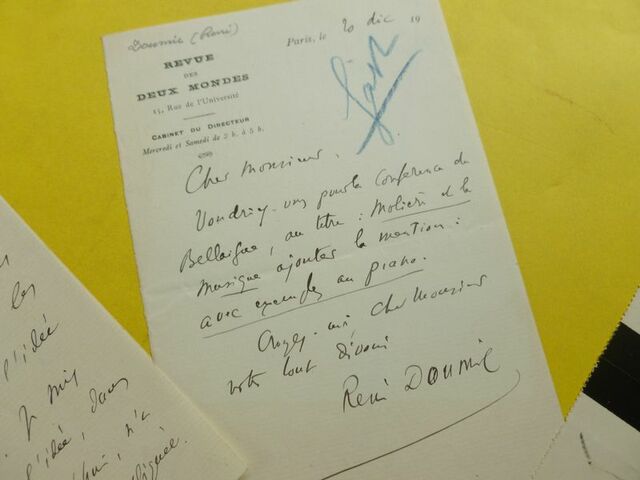 Doumic (René)
REVUE
DES
DEUX MONDES
15, Rue de l'Université
CABINET DU DIRECTEUR
Mercredi et Samedi de 2 h. à 5 h.
Paris, le 20 dic 19
Cher Monsieur,
Voudriez-vous pour la Conférence de
Bellaigue, au titre : Molière et la
musique ajouter la mention :
avec exemples au piano.
Croyez-moi cher Monsieur
votre tout dévoué
René DOUMIC
les
l'idée
l'idée, dans
n'a